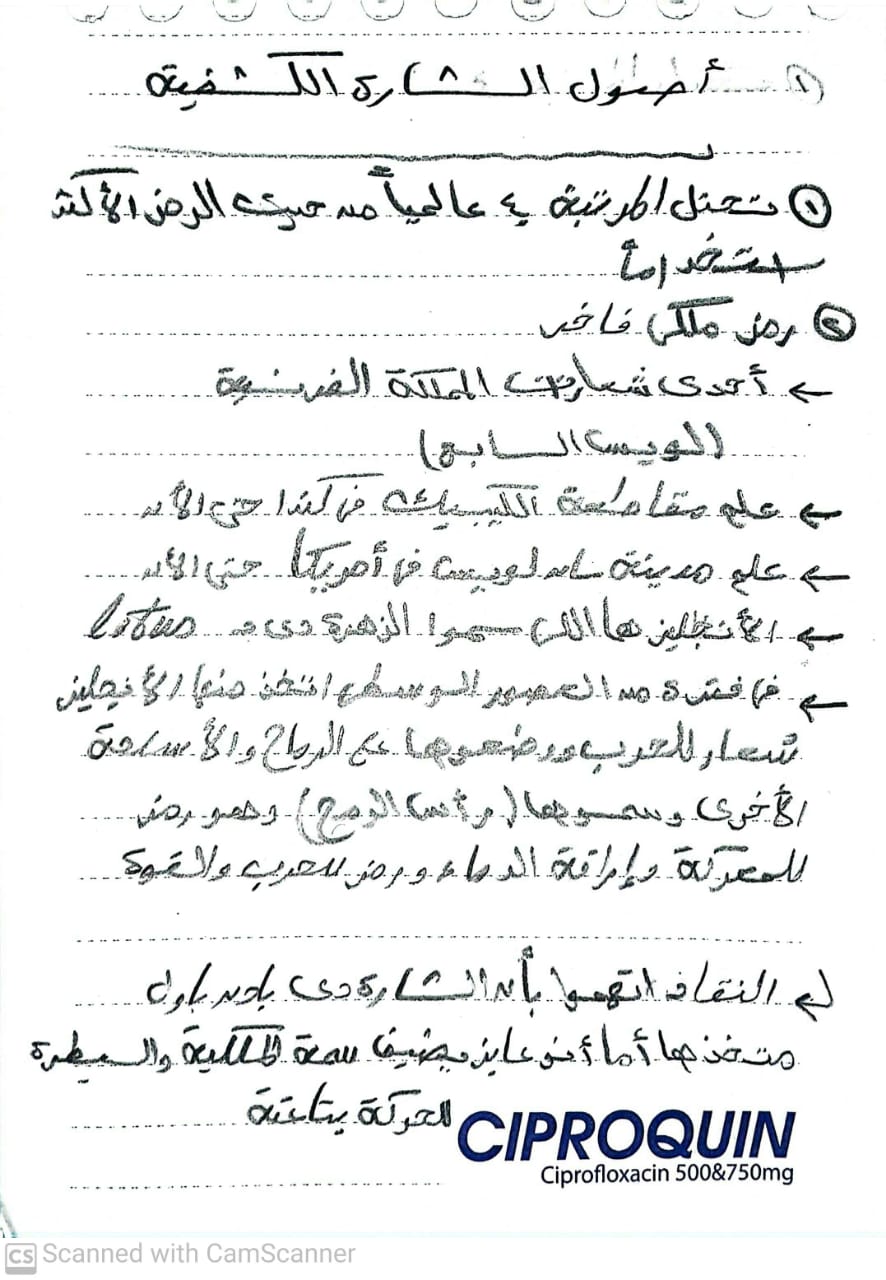 ١ أصول الشارة الكشفية
١ تحتل المرتبة ٤ عالمياً من حيث الرمز الأكثر
استخداماً
٢ رمز ملكي فاخر
← أحدى شعارات المملكة الفرنسية
(لويس السابع)
← علم مقاطعة الكيبيك في كندا حتى الأن
← علم مدينة سان لويس في أمريكا حتى الأن
← الأنجليز هما اللي سموا الزهرة دي بـ lotus
← في فترة من العصور الوسطى اتخذ منها الأنجليز
شعار للحرب ووضعوها على الرماح والأسلحة
الأخرى وسموها (رأس الرمح) وهو رمز
للمعركة وإراقة الدماء ورمز للحرب والقوة
← النقاد اتهموا بأن الشارة دي بادن باول
متخذها أما أنو عايز يضيف سمة الملكية والسيطرة
للحركة بتاعته
CIPROQUIN
Ciprofloxacin 500&750mg
CS Scanned with CamScanner